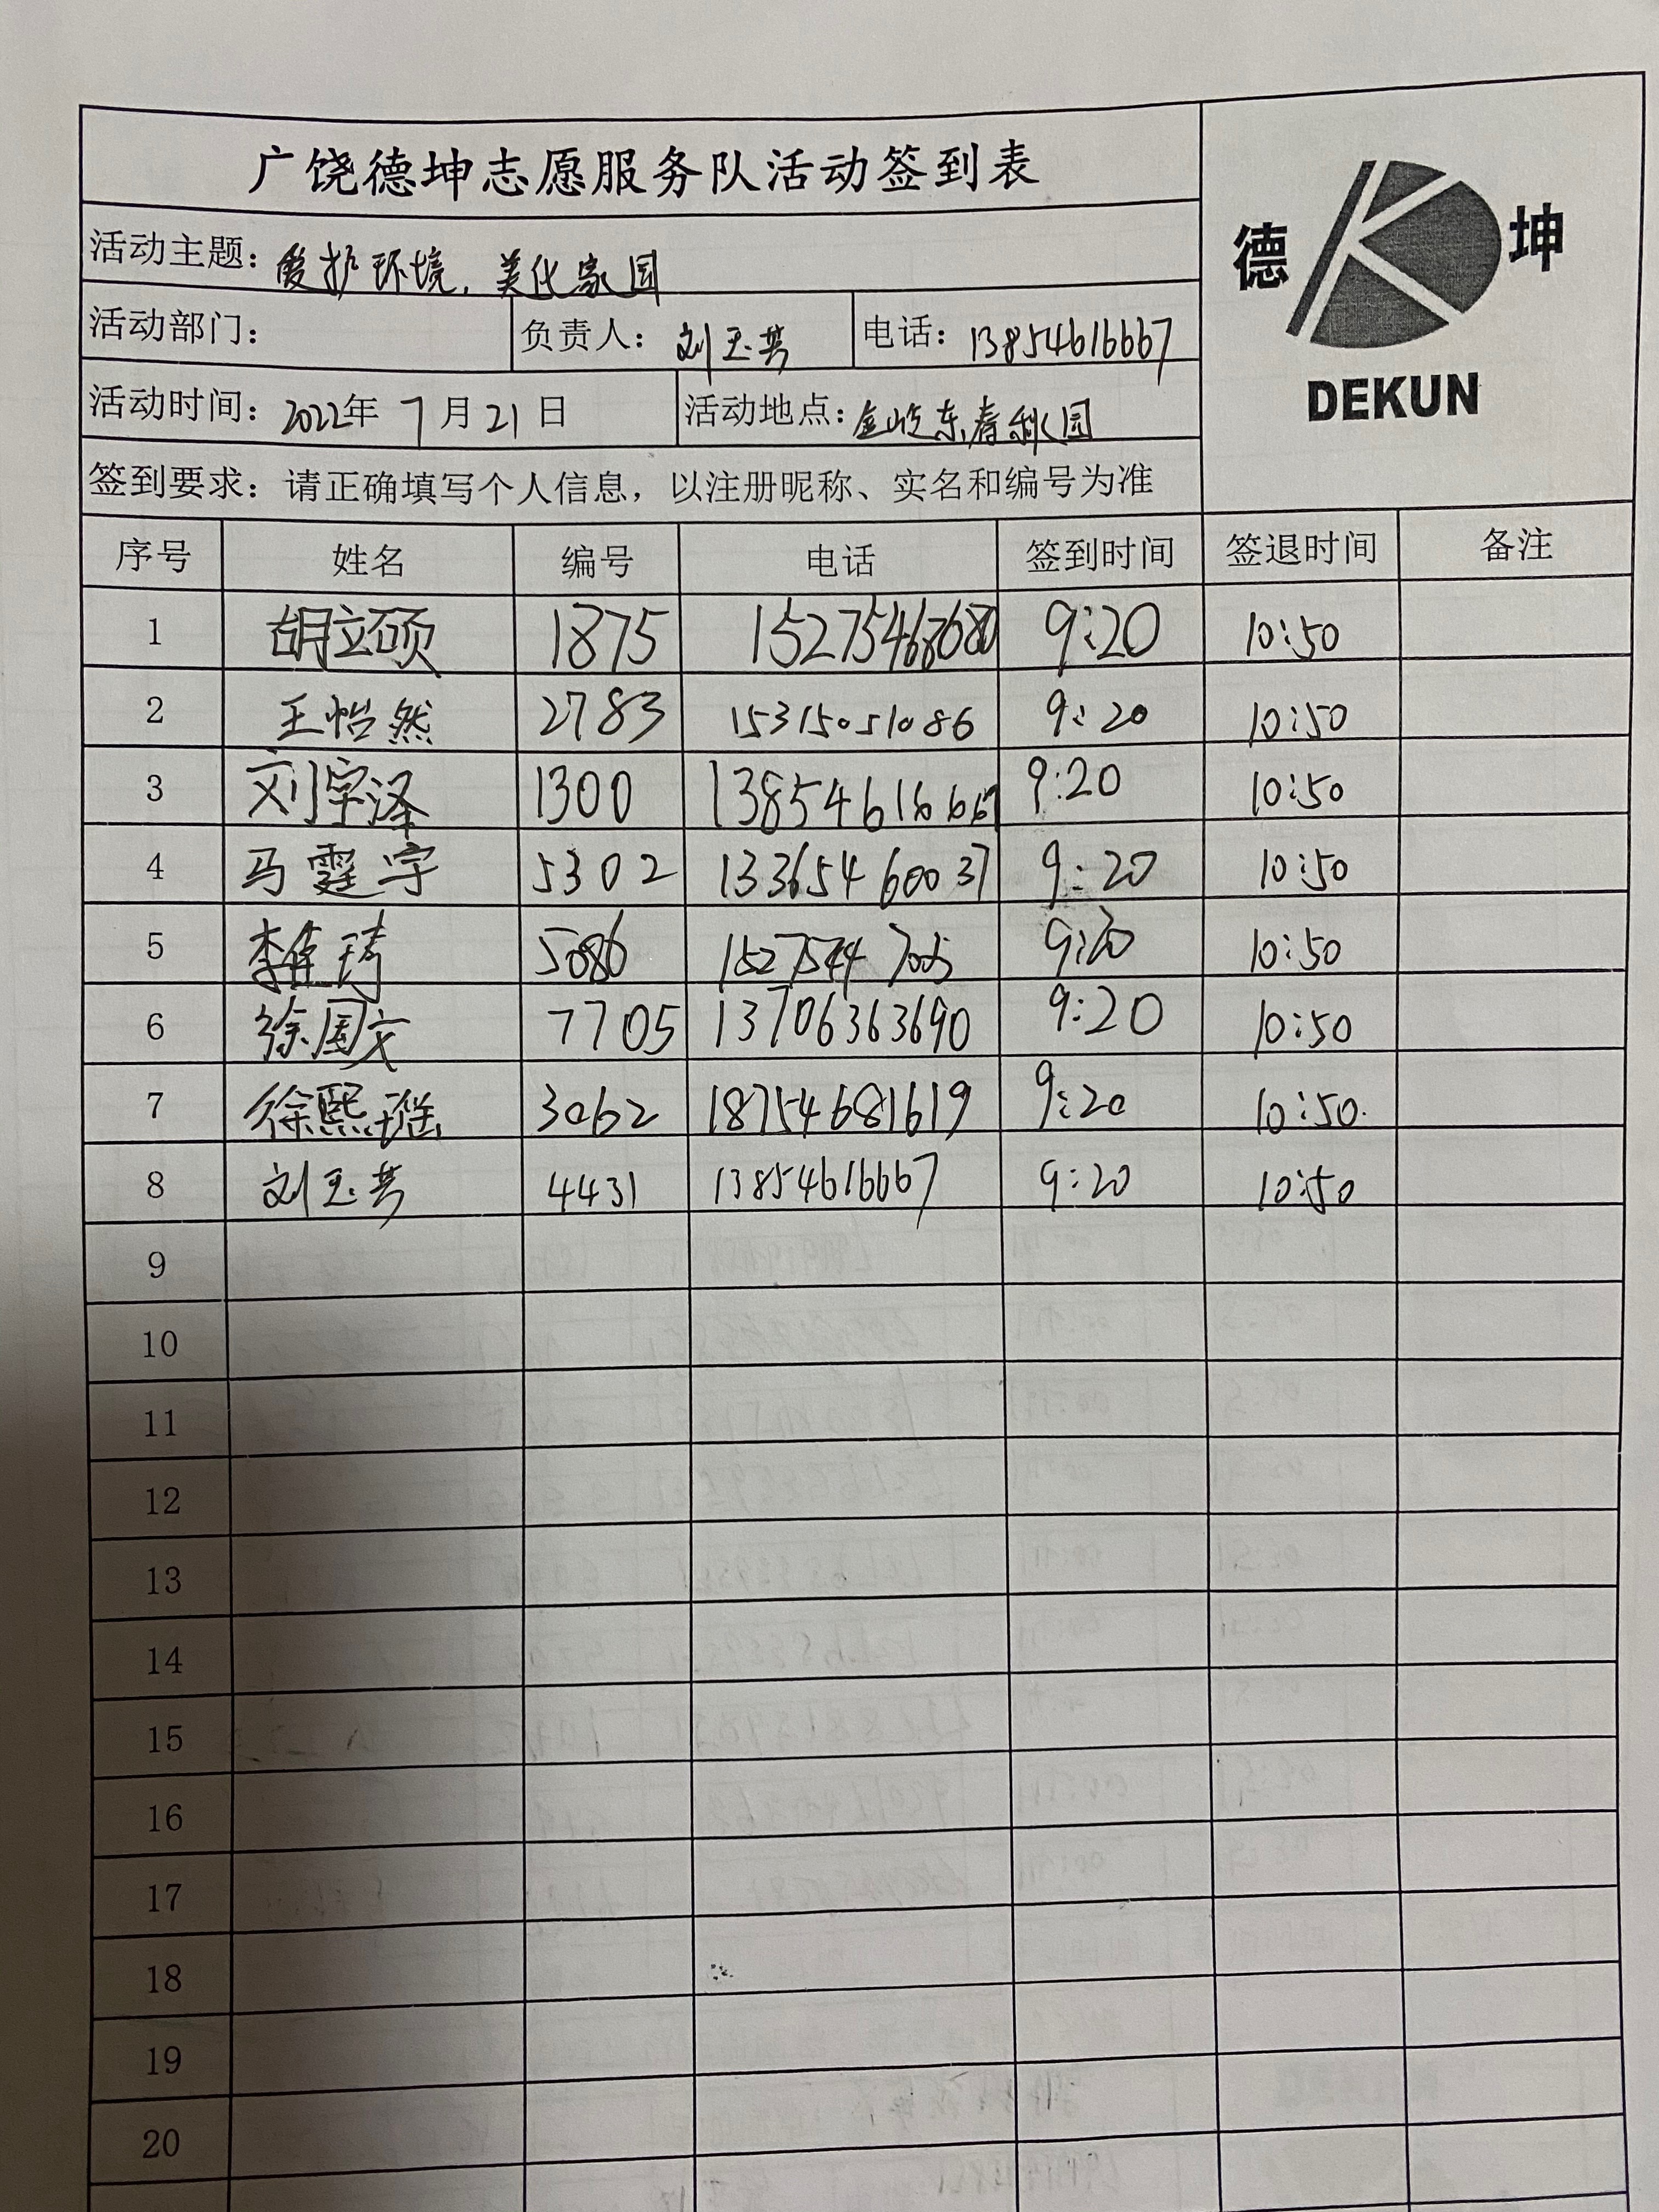 广饶德坤志愿服务队活动签到表
德 坤
DEKUN
活动主题：爱护环境，美化家园
活动部门： 负责人：刘玉芸 电话：13854616667
活动时间：2022年 7月21日 活动地点：金屹东春秋园
签到要求：请正确填写个人信息，以注册昵称、实名和编号为准
序号 姓名 编号 电话 签到时间 签退时间 备注
1 胡立硕 1875 15275468680 9:20 10:50
2 王怡然 2783 15315051086 9:20 10:50
3 刘宇泽 1300 13854616667 9:20 10:50
4 马霆宇 5302 13365460037 9:20 10:50
5 李 琦 5086 9:20 10:50
6 徐国文 7705 13706363690 9:20 10:50
7 徐熙瑶 3062 18754681619 9:20 10:50
8 刘玉芸 4431 13854616667 9:20 10:50
9
10
11
12
13
14
15
16
17
18
19
20